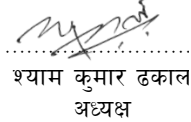 श्याम कुमार ढकाल
अध्यक्ष